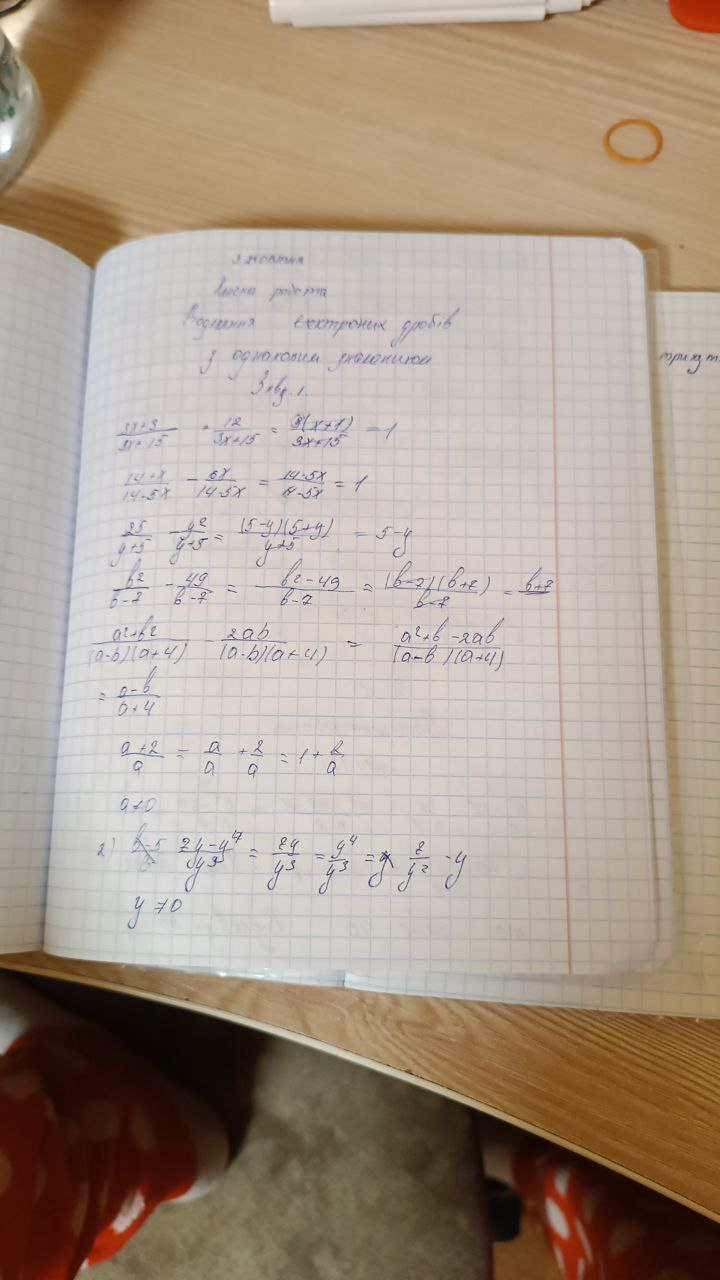 9 жовтня
Класна робота
Віднімання електроних дробів
з однаковим знаменником
Завд. 1.
(3x+3)/(3x+15) + 12/(3x+15) = 3(x+1)/(3x+15) = 1
(14+x)/(14-5x) - 6x/(14-5x) = (14-5x)/(14-5x) = 1
25/(y+5) - y²/(y+5) = (5-y)(5+y)/(y+5) = 5-y
b²/(b-7) - 49/(b-7) = (b²-49)/(b-7) = (b-7)(b+7)/(b-7) = b+7
(a²+b²)/((a-b)(a+4)) - 2ab/((a-b)(a+4)) = (a²+b-2ab)/((a-b)(a+4))
= (a-b)/(a+4)
(a+2)/a = a/a + 2/a = 1 + 2/a
a≠0
2) (2y-y⁴)/y³ = 2y/y³ = y⁴/y³ = 2/y² - y
y≠0